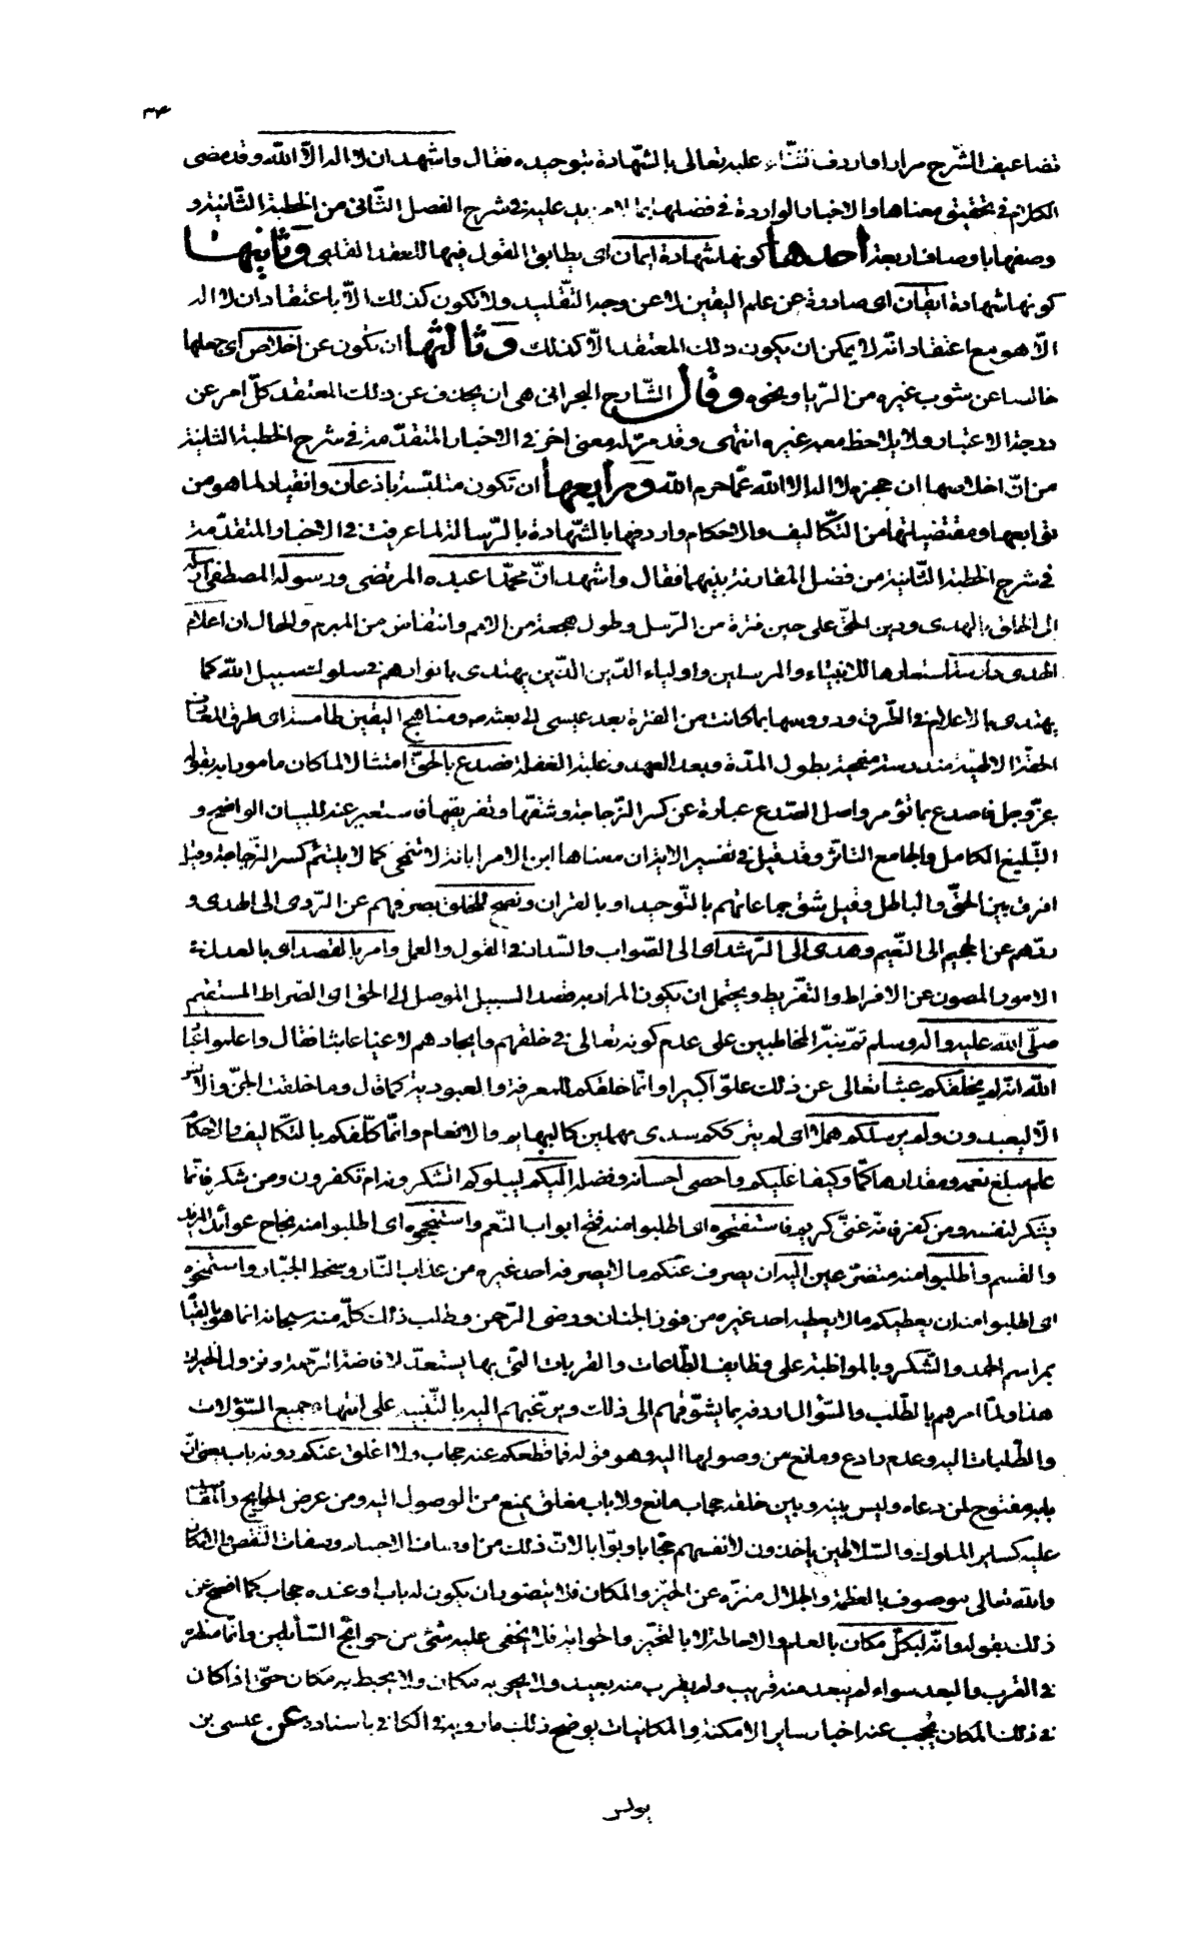 ٣٤
تضاعيف الشّرح مرارا و اردف الثّناء عليه تعالى بالشّهادة بتوحيده فقال و اشهد ان لا اله الّا اللّه و قد مضى
الكلام في تحقيق معناها و الاخبار الواردة في فضلها بما لا مزيد عليه في شرح الفصل الثّاني من الخطبة الثّانية و
وصفها باوصاف اربعة احدها كونها شهادة ايمان اى يطابق القول فيها للعقد القلبي و ثانيها
كونها شهادة ايقان اى صادرة عن علم اليقين لا عن وجه التّقليد و لا تكون كذلك الّا باعتقاد ان لا اله
الّا هو مع اعتقاد انّه لا يمكن ان يكون ذلك المعتقد الّا كذلك و ثالثها ان تكون عن اخلاص اى جعلها
خالصا عن شوب غيره من الرّيا و نحوه و قال الشّارح البحراني هى ان يحذف عن ذلك المعتقد كلّ امر عن
درجة الاعتبار و لا يلاحظ معه غيره انتهى و قد مرّ له معنى اخر في الاخبار المتقدّمة في شرح الخطبة الثانية
من انّ اخلاصها ان حجزه لا اله الا اللّه عمّا حرم اللّه و رابعها ان تكون متلبّسة باذعان و انقياد لما هو من
توابعها و مقتضياتها من التّكاليف و الاحكام و اردفها بالشّهادة بالرّسالة لما عرفت في الاخبار المتقدّمة
في شرح الخطبة الثّانية من فضل المقارنة بينهما فقال و اشهد انّ محمّدا عبده المرتضى و رسوله المصطفى ارسله
الى الخلق بالهدى و دين الحقّ على حين فترة من الرّسل و طول هجعة من الامم و انتقاض من المبرم و الحال ان اعلام
الهدى دارسة استعارها للانبياء و المرسلين و اولياء الدّين الّذين يهتدى بانوارهم في سلوك سبيل اللّه كما
يهتدى بالاعلام في الطّرق و دروسها بما كانت من الفترة بعد عيسى الى بعثه و مناهج اليقين طامسة اى طرق المعارف
الحقّة الالهيّة مندرسة منمحية بطول المدّة و بعد العهد و غلبة الغفلة فصدع بالحقّ امتثالا لما كان مامورا به بقوله
عزّ و جل فاصدع بما تؤمر و اصل الصّدع عبارة عن كسر الزّجاجة و شقّها و تفريقها فاستعير عنه للبيان الواضح و
التّبليغ الكامل و الجامع التاثّر و قد قيل في تفسير الاية ان معناها ابن الامر ابانة لا تنمحى كما لا يلتئم كسر الزّجاجة و قيل
افرق بين الحقّ و الباطل و قيل شق جماعاتهم بالتّوحيد او بالقران و نصح للخلق بصرفهم عن الرّدى الى الهدى و
ردّهم عن الجحيم الى النّعيم و هدى الى الرّشد اى الى الصّواب و السّداد في القول و العمل و امر بالقصد اى بالعدل في
الامور المصون عن الافراط و التفّريط و يحتمل ان يكون المراد به قصد السبيل الموصل الى الحق اى الصّراط المستقيم
صلّى اللّه عليه و اله و سلم ثمّ نبّه المخاطبين على عدم كونه تعالى في خلقهم و ايجادهم لاعبا عابثا فقال و اعلموا عباد
اللّه انّه لم يخلقكم عبثا تعالى عن ذلك علوّا كبيرا و انّما خلقكم للمعرفة و العبوديّة كما قال و ما خلقت الجنّ و الانس
الّا ليعبدون و لم يرسلكم هملا اى لم يترككم سدى مهملين كالبهايم و الانعام و انّما كلّفكم بالتّكاليف و الاحكام
علم مبلغ نعمه و مقدارها كمّا و كيفا عليكم و احصى احسانه و فضله اليكم ليبلوكم اتشكرونه ام تكفرون و من شكر فانّما
يشكر لنفسه و من كفر فانّه غنىّ كريم فاستفتحوه اى اطلبوا منه فتح ابواب النّعم و استنجحوه اى اطلبوا منه نجاح عوائد المزيد
و القسم و اطلبوا منه متضرّعين اليه ان يصرف عنكم ما لا يصرفه احد غيره من عذاب النّار و سخط الجبّار و استمنحوه
اى اطلبوا منه ان يعطيكم ما لا يعطيه احد غيره من فوز الجنان و رضى الرّحمن و طلب ذلك كلّه منه سبحانه انما هو بالقيام
بمراسم الحمد و الشّكر و بالمواظبة على وظايف الطّاعات و القربات الّتى بها يستعدّ لافاضة الرّحمة و نزول الخيرات
هذا و لمّا امرهم بالطّلب و السّؤال اردفه بما يشوّقهم الى ذلك و يرغّبهم اليه بالتّنبيه على انتهاء جميع السّؤلات
و الطّلبات اليه و عدم رادع و مانع من وصولها اليه و هو قوله فما قطعكم عنه حجاب و لا اغلق عنكم دونه باب يعنى انّ
بابه مفتوح لمن دعاه و ليس بينه و بين خلقه حجاب مانع و لا باب مغلق يمنع من الوصول اليه و من عرض الحوايج و المقاصد
عليه كساير الملوك و السّلاطين يأخذون لأنفسهم حجّابا و بوّابا لانّ ذلك من اوصاف الاجسام و صفات النّقص و الامكان
و اللّه تعالى موصوف بالعظمة و الجلال منزّه عن الحيّز و المكان فلا يتصوّر ان يكون له باب او عنده حجاب كما افصح عن
ذلك بقوله و انّه لبكلّ مكان بالعلم و الاحاطة لا بالتحيّز و الحواية فلا يخفى عليه شىء من حوائج السّائلين و انّما منظره
في القرب و البعد سواء لم يبعد منه قريب و لم يقرب منه بعيد و لا يحويه مكان و لا يحيط به مكان حتّى اذا كان
في ذلك المكان يحجب عنه اخبار ساير الامكنة و المكانيات يوضح ذلك ما رويه في الكافي باسناده عن عيسى بن
يونس